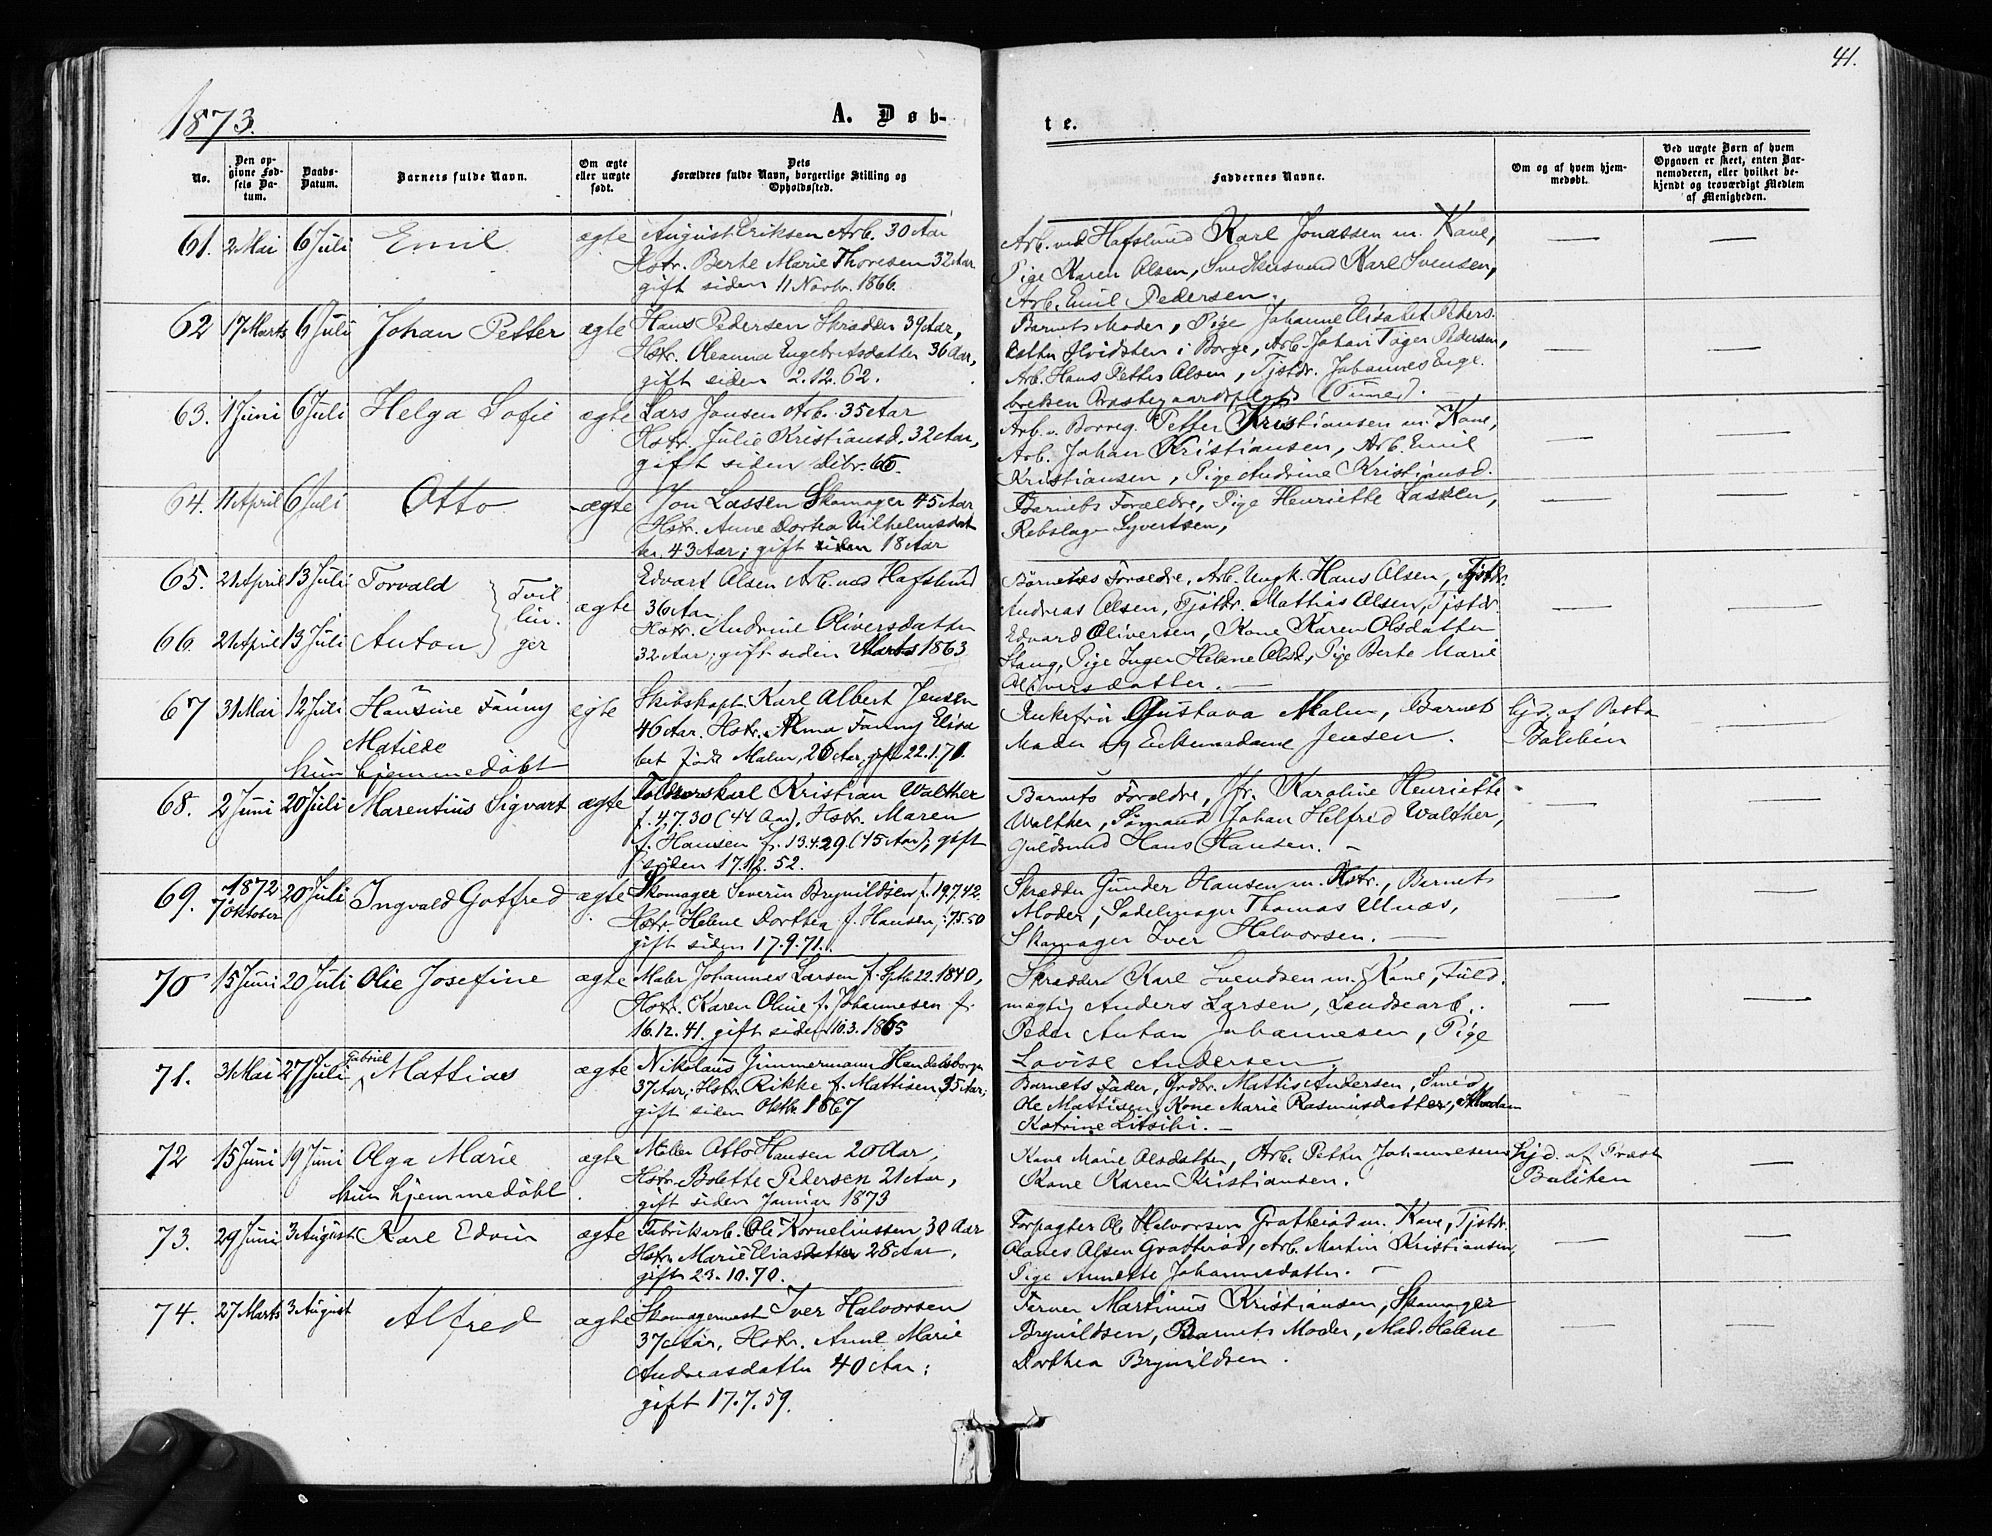 41.
1873.
A. Døb-
te.
No.
Den op-
givne Fød-
sels Da-
tum.
Daabs-
Datum.
Barnets fulde Navn.
Om ægte
eller uægte
født.
Dets
Forældres fulde Navn, borgerlige Stilling og
Opholdssted.
Faddernes Navne.
Om og af hvem hjem-
medøbt.
Ved uægte Børn af hvem
Opgaven er skeet, enten Bar-
nemoderen, eller hvilket be-
kjendt og troværdigt Medlem
af Menigheden.
61. 2 Mai 6 Juli Emil ægte August Eriksen Arb. 30 Aar
Hstr. Berte Marie Thoresen 32 Aar
gift siden 11 Novbr. 1866.
Arb. ved Hafslund Karl Jonassen m. Kone,
Pige Karen Olsen, Snedkersvend Karl Svensen,
Arb. Emil Pedersen.
62 17 Marts 6 Juli Johan Petter ægte Hans Pedersen Skrædder 39 Aar,
Hstr. Oleanna Engebretsdatter 36 Aar,
gift siden 2.12.62.
Barnets Moder, Pige Johanne Elisabet Peders-
datter Hvidsten i Borge, Arb. Johan Inger Pedersen,
Arb. Hans Petter Olsen, Tjstdr. Johannes Enge-
bretsen Præstegaardsplads (Tune).
63. 1 Juni 6 Juli Helga Sofie ægte Lars Jansen Arb. 35 Aar
Hstr. Julie Kristiansd. 32 Aar,
gift siden Dcbr. 65.
Arb. v. Borreg. Petter Kristiansen m. Kone,
Arb. Johan Kristiansen, Arb. Emil
Kristiansen, Pige Andrine Kristiansd.
64. 11 April 6 Juli Otto ægte Jon Lassen Skomager 45 Aar
Hstr. Anne Dortea Vilhelmsdat
ter 43 Aar; gift siden 18 Aar
Barnets Forældre, Pige Henriette Lassen,
Rebslager Syvertsen,
65. 21 April 13 Juli Torvald
66. 21 April 13 Juli Anton
Tvil
lin-
ger
ægte
Edvart Olsen Arb. ved Hafslund
36 Aar
Hstr. Andrine Oliversdatter
32 Aar; gift siden Marts 1863
Børnenes Forældre, Arb. Ungk. Hans Olsen, Tjstdr.
Andreas Olsen, Tjstdr. Mattias Olsen, Tjstdr.
Edvard Oliversen, Kone Karen Olsdatter
Stang, Pige Inger Helene Olsd., Pige Berte Marie
Oliversdatter.
67 31 Mai 12 Juli Hansine Fanny
Matilde
kun hjemmedøbt
ægte
Skibskapt. Karl Albert Jensen
46 Aar. Hstr. Alma Fanny Elisa
bet født Malm, 26 Aar, gift 22.1.71.
Enkefru Gustava Malm, Barnets
Moder og Enkemadame Jensen.
hjd. af Pastor
68. 2 Juni 20 Juli Marentius Sigvart ægte Kristian Walther
f. 4.7.30 (44 Aar), Hstr. Maren
f. Hansen f. 13.4.29 (45 Aar), gift
siden 17.12.52.
Barnets Forældre, Jfr. Karoline Henriette
Walther, Sømand Johan Helfred Walther,
Guldsmd Hans Hansen.
69. 1872 7 Oktober 20 Juli Ingvald Gotfred ægte Skomager Severin Brynildsen f. 19.7.42.
Hstr. Helene Dorthea f. Hansen, 7.5.50
gift siden 17.9.71.
Skrædder Gunder Hansen m. Hstr., Barnets
Moder, Sadelmager Thomas Ulnæs,
Skomager Iver Halvorsen.
70 15 Juni 20 Juli Olie Josefine ægte Maler Johannes Larsen f. Spbr 22. 1840,
Hstr. Karen Oline f. Johannesen f.
16.12.41. gift siden 10.3.1865
Skrædder Karl Svendsen m. Kone, Fuld-
mægtig Anders Larsen, Landsearb.
Peder Anton Johannesen, Pige
Lovise Andersen.
71. 31 Mai 27 Juli Gabriel
Mattias ægte Nikolaus Zimmermann Handelsborger
37 Aar, Hstr. Rikke f. Mattisen 35 Aar;
gift siden Oktbr 1867
Barnets Fader, Grdbr. Mattis Andersen, Smed
Ole Mattisen, Kone Marie Rasmusdatter, Madam
Katrine
72 15 Juni 19 Juni Olga Marie
kun hjemmedøbt
ægte
Møller Otto Hansen 20 Aar,
Hstr. Bolette Pedersen 21 Aar,
gift siden Januar 1873
Kone Marie Olsdatter, Arb. Petter Johannesens
Kone Karen Kristiansen.
hjd. af Præst
73. 29 Juni 3 August Karl Edvin ægte Fabrikarb. Ole Korneliussen, 30 Aar
Hstr. Marie Eliasdatter 28 Aar,
gift 23.10.70.
Forpagter Ole Halvorsen Grotterød m. Kone, Tjstdr.
Olaves Olsen Grotterød, Arb. Martin Kristiansen,
Pige Annette Johannesdatter.
74. 27 Marts 3 August Alfred ægte Skomagermest Iver Halvorsen
37 Aar, Hstr. Anne Marie
Andreasdatter 40 Aar;
gift 17.7.59.
Farver Martinus Kristiansen, Skomager
Brynildsen, Barnets Moder, Mad. Helene
Dorthea Brynildsen.